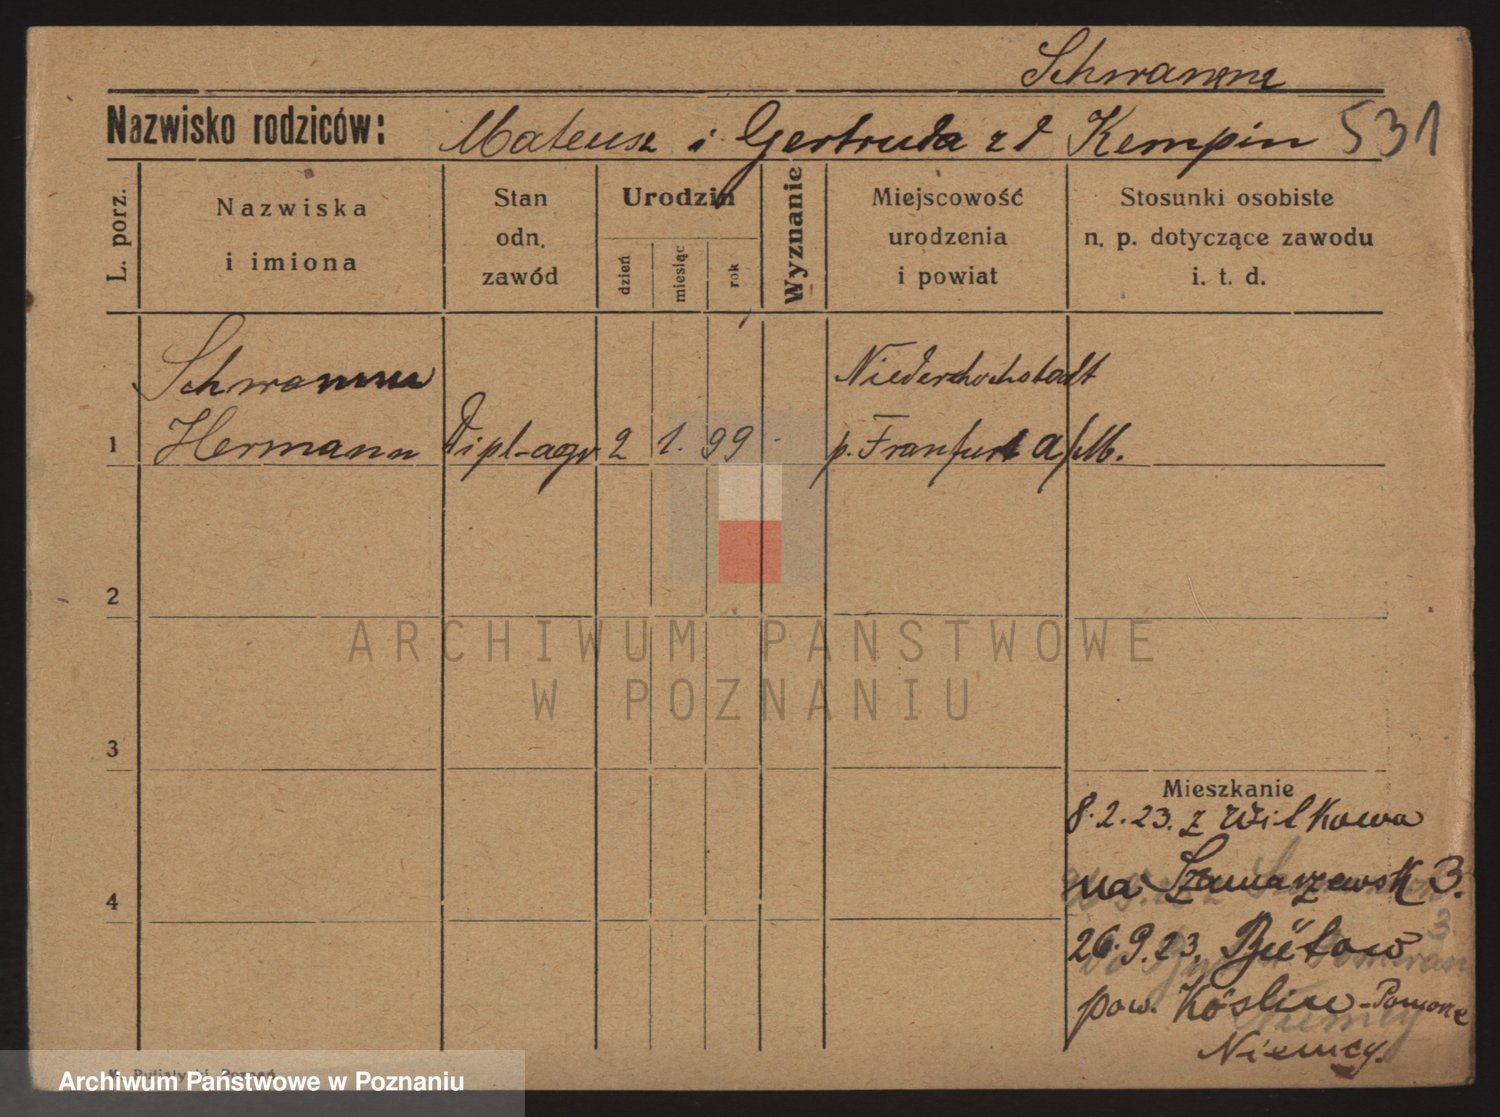 Schwamm
Nazwisko rodziców: Mateusz i Gertruda zd Kempin 531
L. porz.
Nazwiska
i imiona
Stan
odn.
zawód
Urodzin
dzień
miesiąc
rok
Wyznanie
Miejscowość
urodzenia
i powiat
Stosunki osobiste
n. p. dotyczące zawodu
i. t. d.
Schwamm Niederhochstadt
1 Hermann Dipl-agr. 2 1. 99 p. Franfurt a/M.
2
3
4
Mieszkanie
8.2.23. z Wilkowa
na Szamarzewsk 3.
26.9.23. Bütow
pow. Köslin - Pomone
Niemcy.
ARCHIWUM PAŃSTWOWE
W POZNANIU
Poznań
Archiwum Państwowe w Poznaniu